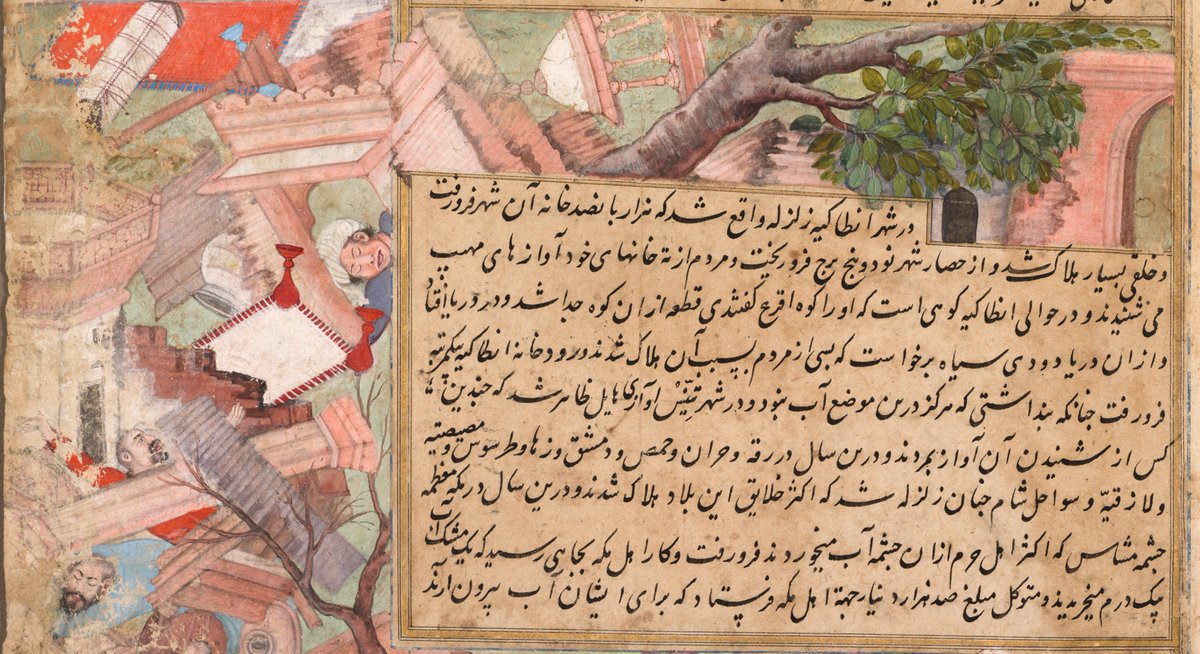 در شهر انطاکیه زلزله واقع شد که هزار پانصد خانه آن شهر فرو رفت
و خلقی بسیار هلاک شد و از حصار شهر نود و پنج برج فرو ریخت و مردم از ته خانهای خود آوازهای مهیب
می شنیدند و در حوالی انطاکیه کوهی است که او را کوه اقرع گفتندی قطعه از ان کوه جدا شد و در دریا افتاد
و از ان دریا دودی سیاه برخواست که بسی از مردم بسبب آن هلاک شدند و رودخانه انطاکیه یکمرتبه
فرو رفت چنانکه پنداشتی که هرگز درین موضع آب نبود و در شهر تنّیس آوازی هایل ظاهر شد که چندین
کس از شنیدن آن آواز بمردند و درین سال در رقه و حران و حمص و دمشق و رها و طرسوس و مصیصیه
و لازقیّه و سواحل شام چنان زلزله شد که اکثر خلایق این بلاد هلاک شدند و درین سال در مکه معظمه
چشمه مشاس که اکثر اهل حرم از ان چشمه آب میخوردند فرو رفت و کار اهل مکه بجایی رسید که یک مشک آب
بیک درم میخریدند و متوکل مبلغ صد هزار دینار جهة اهل مکه فرستاد که برای ایشان آب بیرون آرند